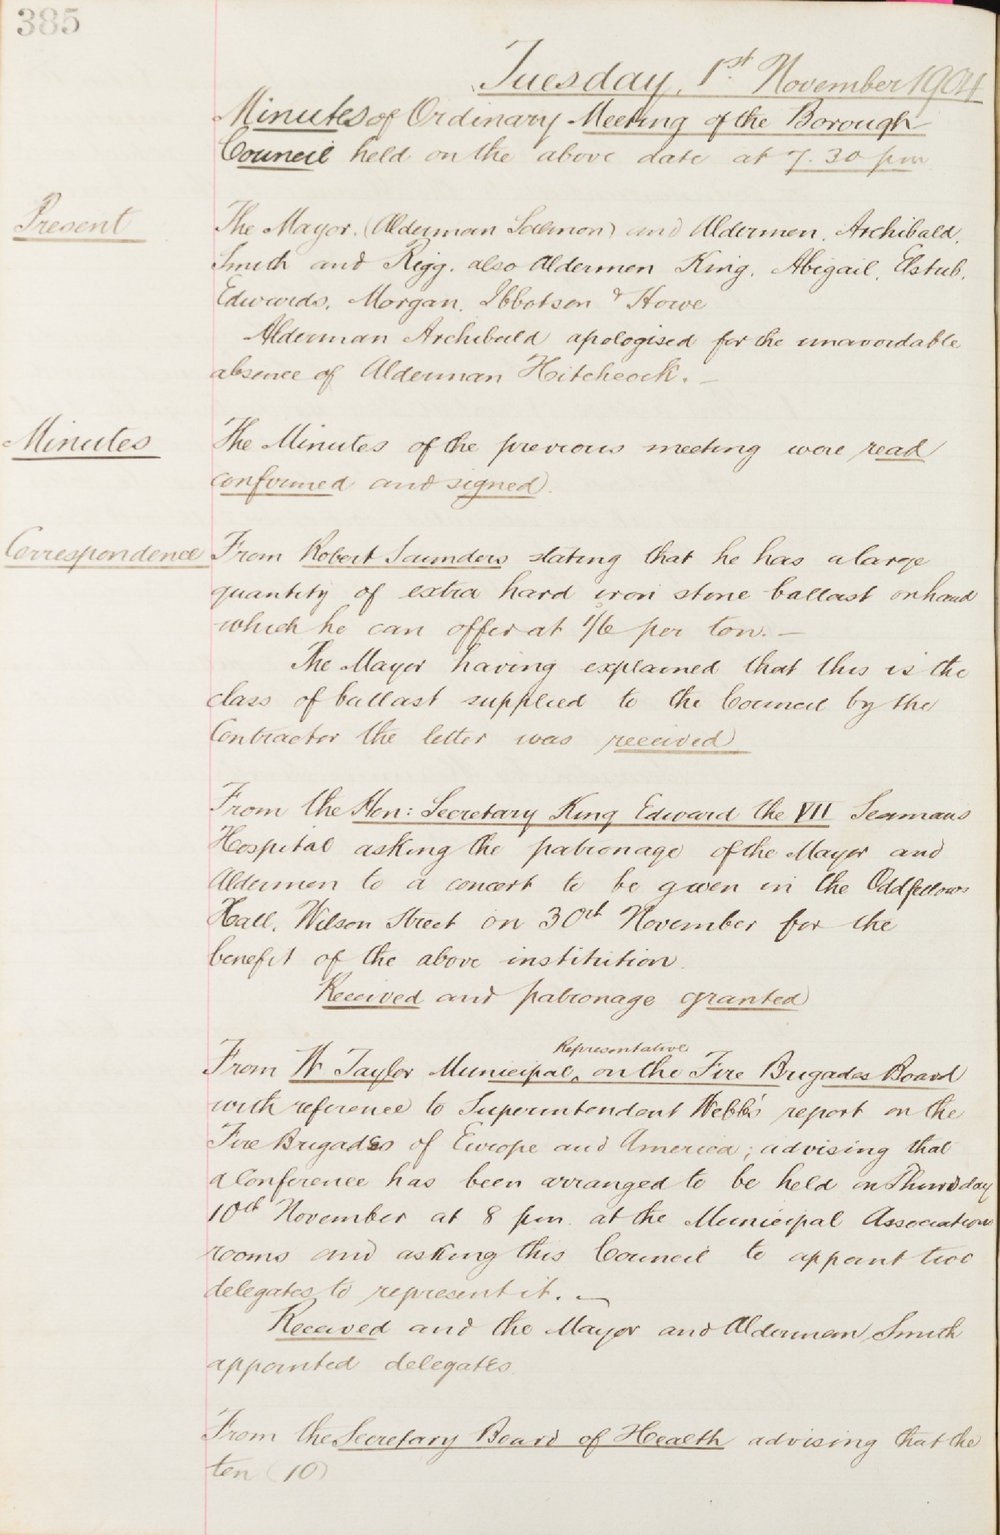 385
Tuesday, 1st November 1904
Minutes of Ordinary Meeting of the Borough
Council held on the above date at 7.30 pm
Present
The Mayor. (Alderman Salmon) and Aldermen, Archibald,
Smith and Rigg. also Aldermen King, Abigail, Elstub,
Edwards, Morgan, Ibbotson & Howe
Alderman Archibald apologised for the unavoidable
absence of Alderman Hitchcock. —
Minutes
The Minutes of the previous meeting were read
confirmed and signed.
Correspondence
From Robert Saunders stating that he has a large
quantity of extra hard iron stone ballast on hand
which he can offer at 1/6 per ton. —
The Mayor having explained that this is the
class of ballast supplied to the Council by the
Contractor the letter was received
From the Hon: Secretary King Edward the VII Seamans
Hospital asking the patronage of the Mayor and
Aldermen to a concert to be given in the Oddfellows
Hall, Wilson Street on 30th November for the
benefit of the above institution.
Received and patronage granted
From W Taylor Municipal Representative on the Fire Brigades Board
with reference to Superintendent Webb's report on the
Fire Brigades of Europe and America; advising that
a Conference has been arranged to be held on Thursday
10th November at 8 pm. at the Municipal Association
rooms and asking this Council to appoint two
delegates to represent it. —
Received and the Mayor and Alderman Smith
appointed delegates
From the Secretary Board of Health advising that the
ten (10)